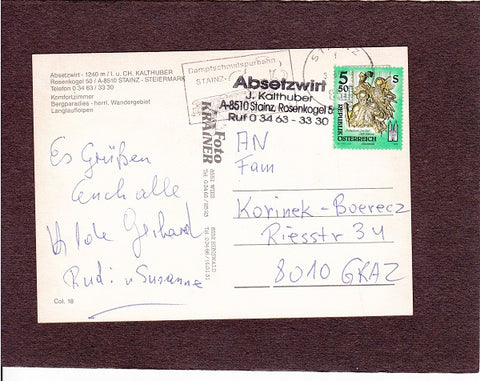 Absetzwirt - 1240 m / I. u. CH. KALTHUBER
Rosenkogel 50 / A-8510 STAINZ - STEIERMARK
Telefon 0 34 63 / 33 30
Komfortzimmer
Bergparadies - herrl. Wandergebiet
Langlaufloipen
Es Grüßen
Euch alle
Hilde Gerhard
Rudi u Susanne
Col. 18
Dampfschmalspurbahn
STAINZ-
Absetzwirt
J. Kalthuber
A-8510 Stainz, Rosenkogel 5
Ruf 0 34 63 - 33 30
Foto
KRAINER
5 S
50
REPUBLIK
ÖSTERREICH
AN
Fam
Korinek-Boerecz
Riesstr 34
8010 GRAZ